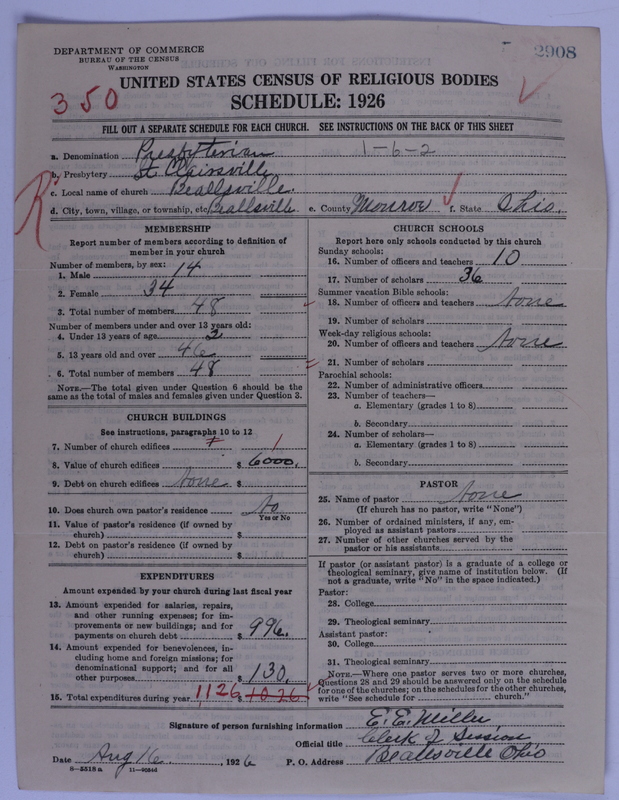 DEPARTMENT OF COMMERCE
BUREAU OF THE CENSUS
WASHINGTON
2908
UNITED STATES CENSUS OF RELIGIOUS BODIES
350
SCHEDULE: 1926
FILL OUT A SEPARATE SCHEDULE FOR EACH CHURCH. SEE INSTRUCTIONS ON THE BACK OF THIS SHEET
a. Denomination Presbyterian 1-6-2
b. Presbytery St Clairsville
c. Local name of church Beallsville.
d. City, town, village, or township, etc. Beallsville e. County Monroe f. State Ohio.
R
MEMBERSHIP
Report number of members according to definition of
member in your church
Number of members, by sex:
1. Male 14
2. Female 34
3. Total number of members 48
Number of members under and over 13 years old:
4. Under 13 years of age 2
5. 13 years old and over 46
6. Total number of members 48
NOTE.—The total given under Question 6 should be
same as the total of males and females given under Question 3.
CHURCH BUILDINGS
See instructions, paragraphs 10 to 12
7. Number of church edifices 1
8. Value of church edifices $ 6000.
9. Debt on church edifices None $
10. Does church own pastor's residence No
Yes or No
11. Value of pastor's residence (if owned by
church) $
12. Debt on pastor's residence (if owned by
church) $
EXPENDITURES
Amount expended by your church during last fiscal year
13. Amount expended for salaries, repairs,
and other running expenses; for im-
provements or new buildings; and for
payments on church debt $ 996.
14. Amount expended for benevolences, in-
cluding home and foreign missions; for
denominational support; and for all
other purposes $ 130.
15. Total expenditures during year 1126 $ 1026
CHURCH SCHOOLS
Report here only schools conducted by this church
Sunday schools:
16. Number of officers and teachers 10
17. Number of scholars 36
Summer vacation Bible schools:
18. Number of officers and teachers None
19. Number of scholars
Week-day religious schools:
20. Number of officers and teachers None
21. Number of scholars
Parochial schools:
22. Number of administrative officers
23. Number of teachers—
a. Elementary (grades 1 to 8)
b. Secondary
24. Number of scholars—
a. Elementary (grades 1 to 8)
b. Secondary
PASTOR
25. Name of pastor None
(If church has no pastor, write "None")
26. Number of ordained ministers, if any, em-
ployed as assistant pastors
27. Number of other churches served by the
pastor or his assistants
If pastor (or assistant pastor) is a graduate of a college or
theological seminary, give name of institution below. (If
not a graduate, write "No" in the space indicated.)
Pastor:
28. College
29. Theological seminary
Assistant pastor:
30. College
31. Theological seminary
NOTE.—Where one pastor serves two or more churches,
Questions 28 and 29 should be answered only on the schedule
for one of the churches; on the schedules for the other churches,
write "See schedule for church."
Signature of person furnishing information E. E. Miller
Official title Clerk of Session
Date Aug 16, 1926 P. O. Address Beallsville Ohio
8—5518a 11—9084d